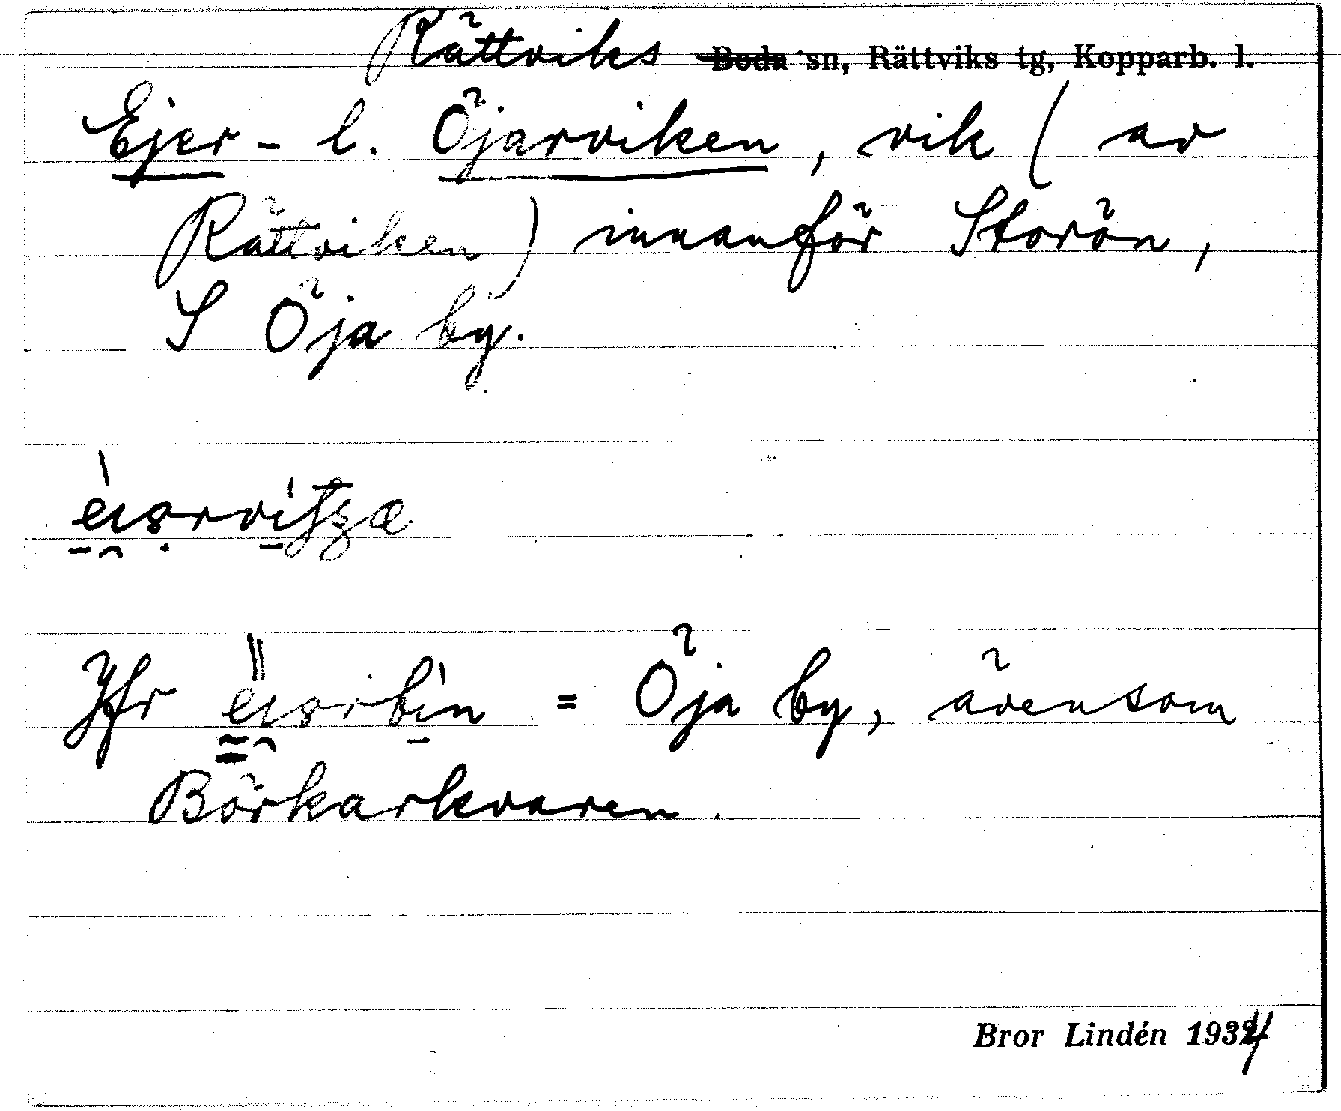 Rättviks ~~Boda~~ sn, Rättviks tg, Kopparb. l.
Ejer- l. Öjarviken, vik (av
Rättviken) innanför Storön,
S Öja by.
Jfr = Öja by, ävensom
Börkarkvaren.
Bror Lindén 1934